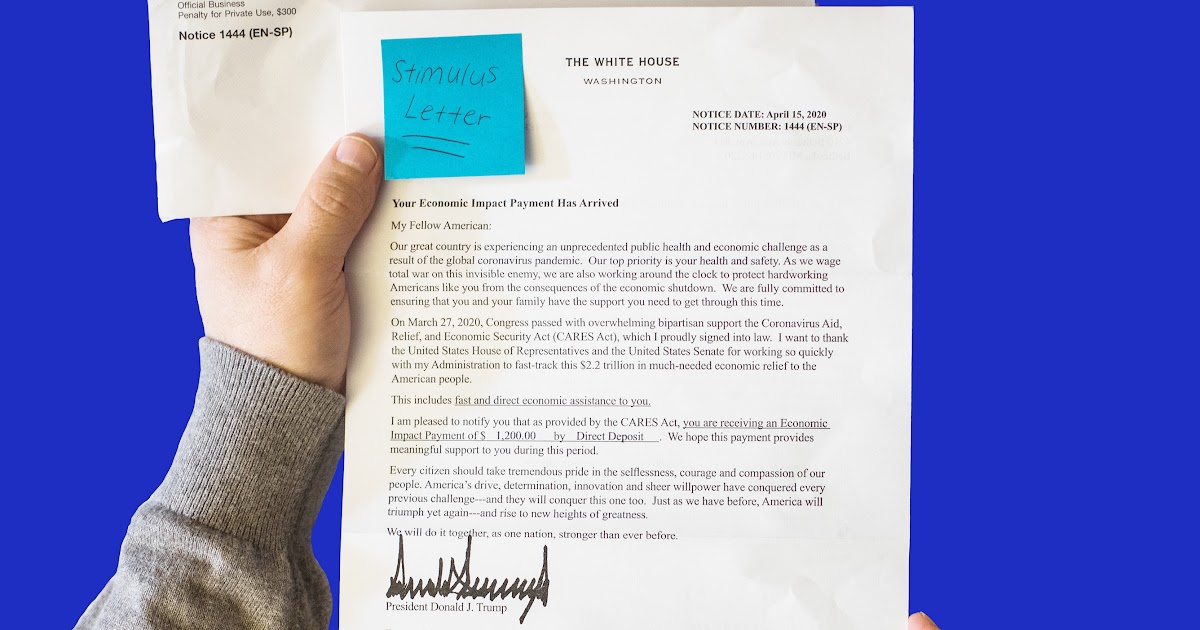 Official Business
Penalty for Private Use, $300
Notice 1444 (EN-SP)
Stimulus
Letter
THE WHITE HOUSE
WASHINGTON
NOTICE DATE: April 15, 2020
NOTICE NUMBER: 1444 (EN-SP)
Your Economic Impact Payment Has Arrived
My Fellow American:
Our great country is experiencing an unprecedented public health and economic challenge as a
result of the global coronavirus pandemic. Our top priority is your health and safety. As we wage
total war on this invisible enemy, we are also working around the clock to protect hardworking
Americans like you from the consequences of the economic shutdown. We are fully committed to
ensuring that you and your family have the support you need to get through this time.
On March 27, 2020, Congress passed with overwhelming bipartisan support the Coronavirus Aid,
Relief, and Economic Security Act (CARES Act), which I proudly signed into law. I want to thank
the United States House of Representatives and the United States Senate for working so quickly
with my Administration to fast-track this $2.2 trillion in much-needed economic relief to the
American people.
This includes fast and direct economic assistance to you.
I am pleased to notify you that as provided by the CARES Act, you are receiving an Economic
Impact Payment of $ 1,200.00 by Direct Deposit . We hope this payment provides
meaningful support to you during this period.
Every citizen should take tremendous pride in the selflessness, courage and compassion of our
people. America's drive, determination, innovation and sheer willpower have conquered every
previous challenge---and they will conquer this one too. Just as we have before, America will
triumph yet again---and rise to new heights of greatness.
We will do it together, as one nation, stronger than ever before.
President Donald J. Trump